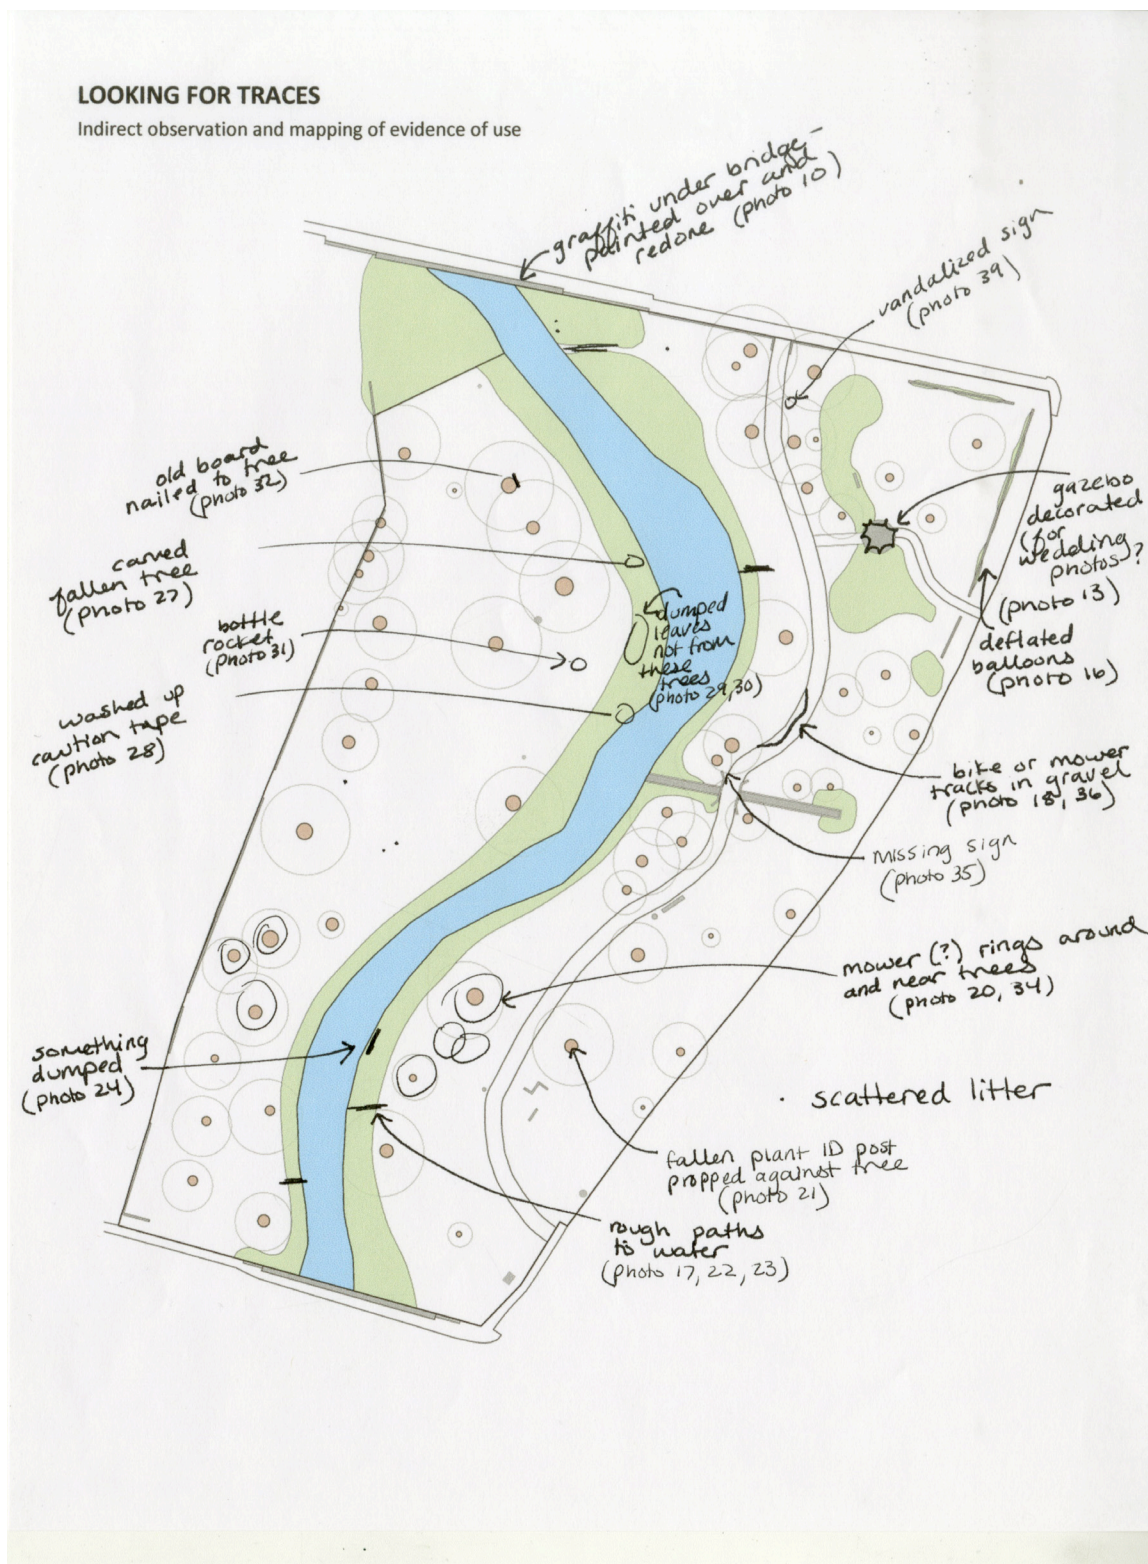 LOOKING FOR TRACES
Indirect observation and mapping of evidence of use
graffiti under bridge -
painted over and
redone (photo 10)
vandalized sign
(photo 39)
old board
nailed to tree
(photo 32)
gazebo
decorated
(for
wedding
photos)?
(photo 13)
carved
fallen tree
(photo 27)
bottle
rocket
(photo 31)
dumped
leaves
not from
these
trees
(photo 29,30)
deflated
balloons
(photo 16)
washed up
caution tape
(photo 28)
bike or mower
tracks in gravel
(photo 18, 36)
missing sign
(photo 35)
mower (?) rings around
and near trees
(photo 20, 34)
something
dumped
(photo 24)
· scattered litter
fallen plant ID post
propped against tree
(photo 21)
rough paths
to water
(photo 17, 22, 23)